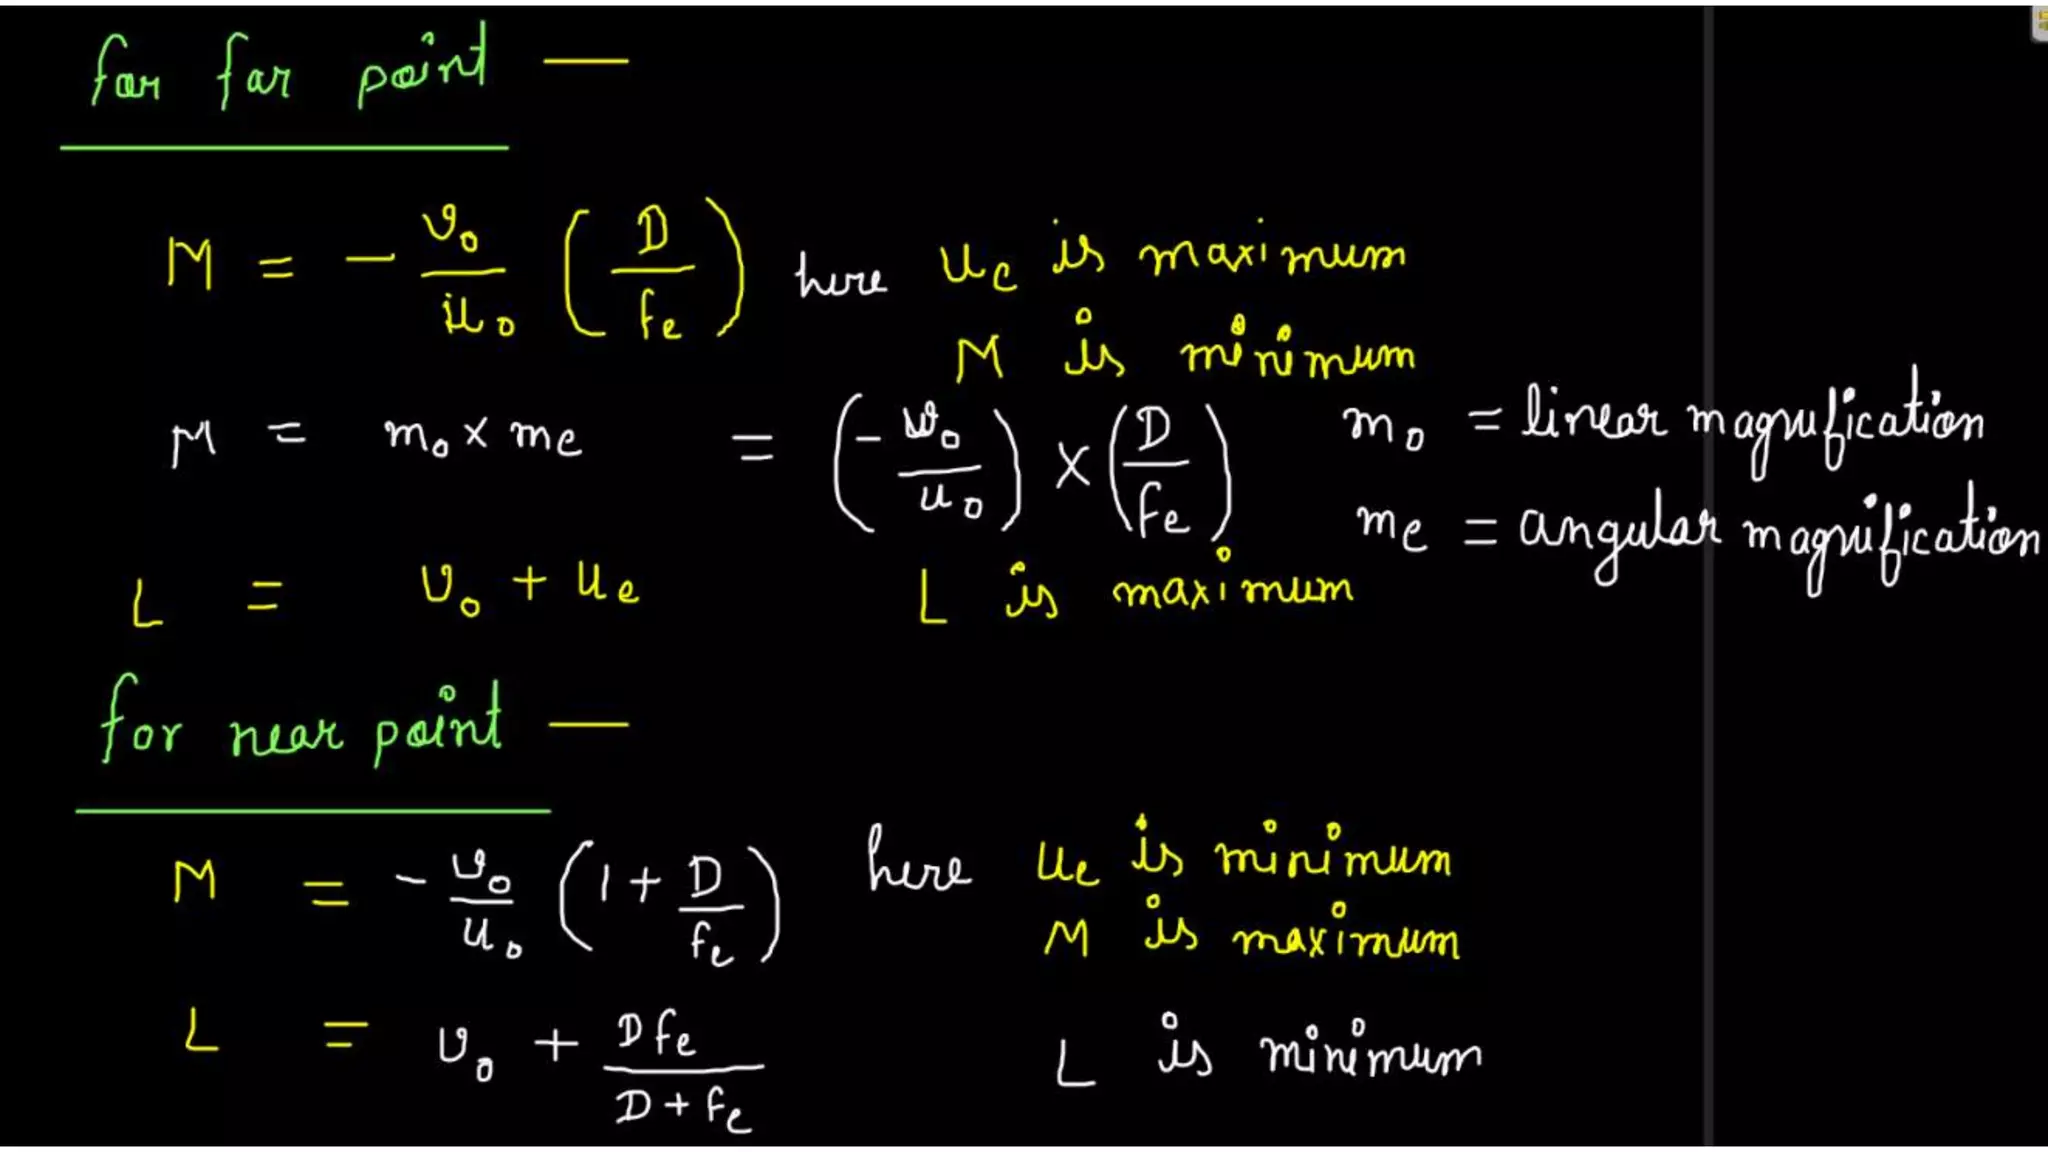 for far point —
M = - v₀/u₀ (D/fe) here ue is maximum
M is minimum
M = m₀ × me = (- v₀/u₀) × (D/fe) m₀ = linear magnification
me = angular magnification
L = v₀ + ue L is maximum
for near point —
M = - v₀/u₀ (1 + D/fe) here ue is minimum
M is maximum
L = v₀ + Dfe/(D + fe) L is minimum